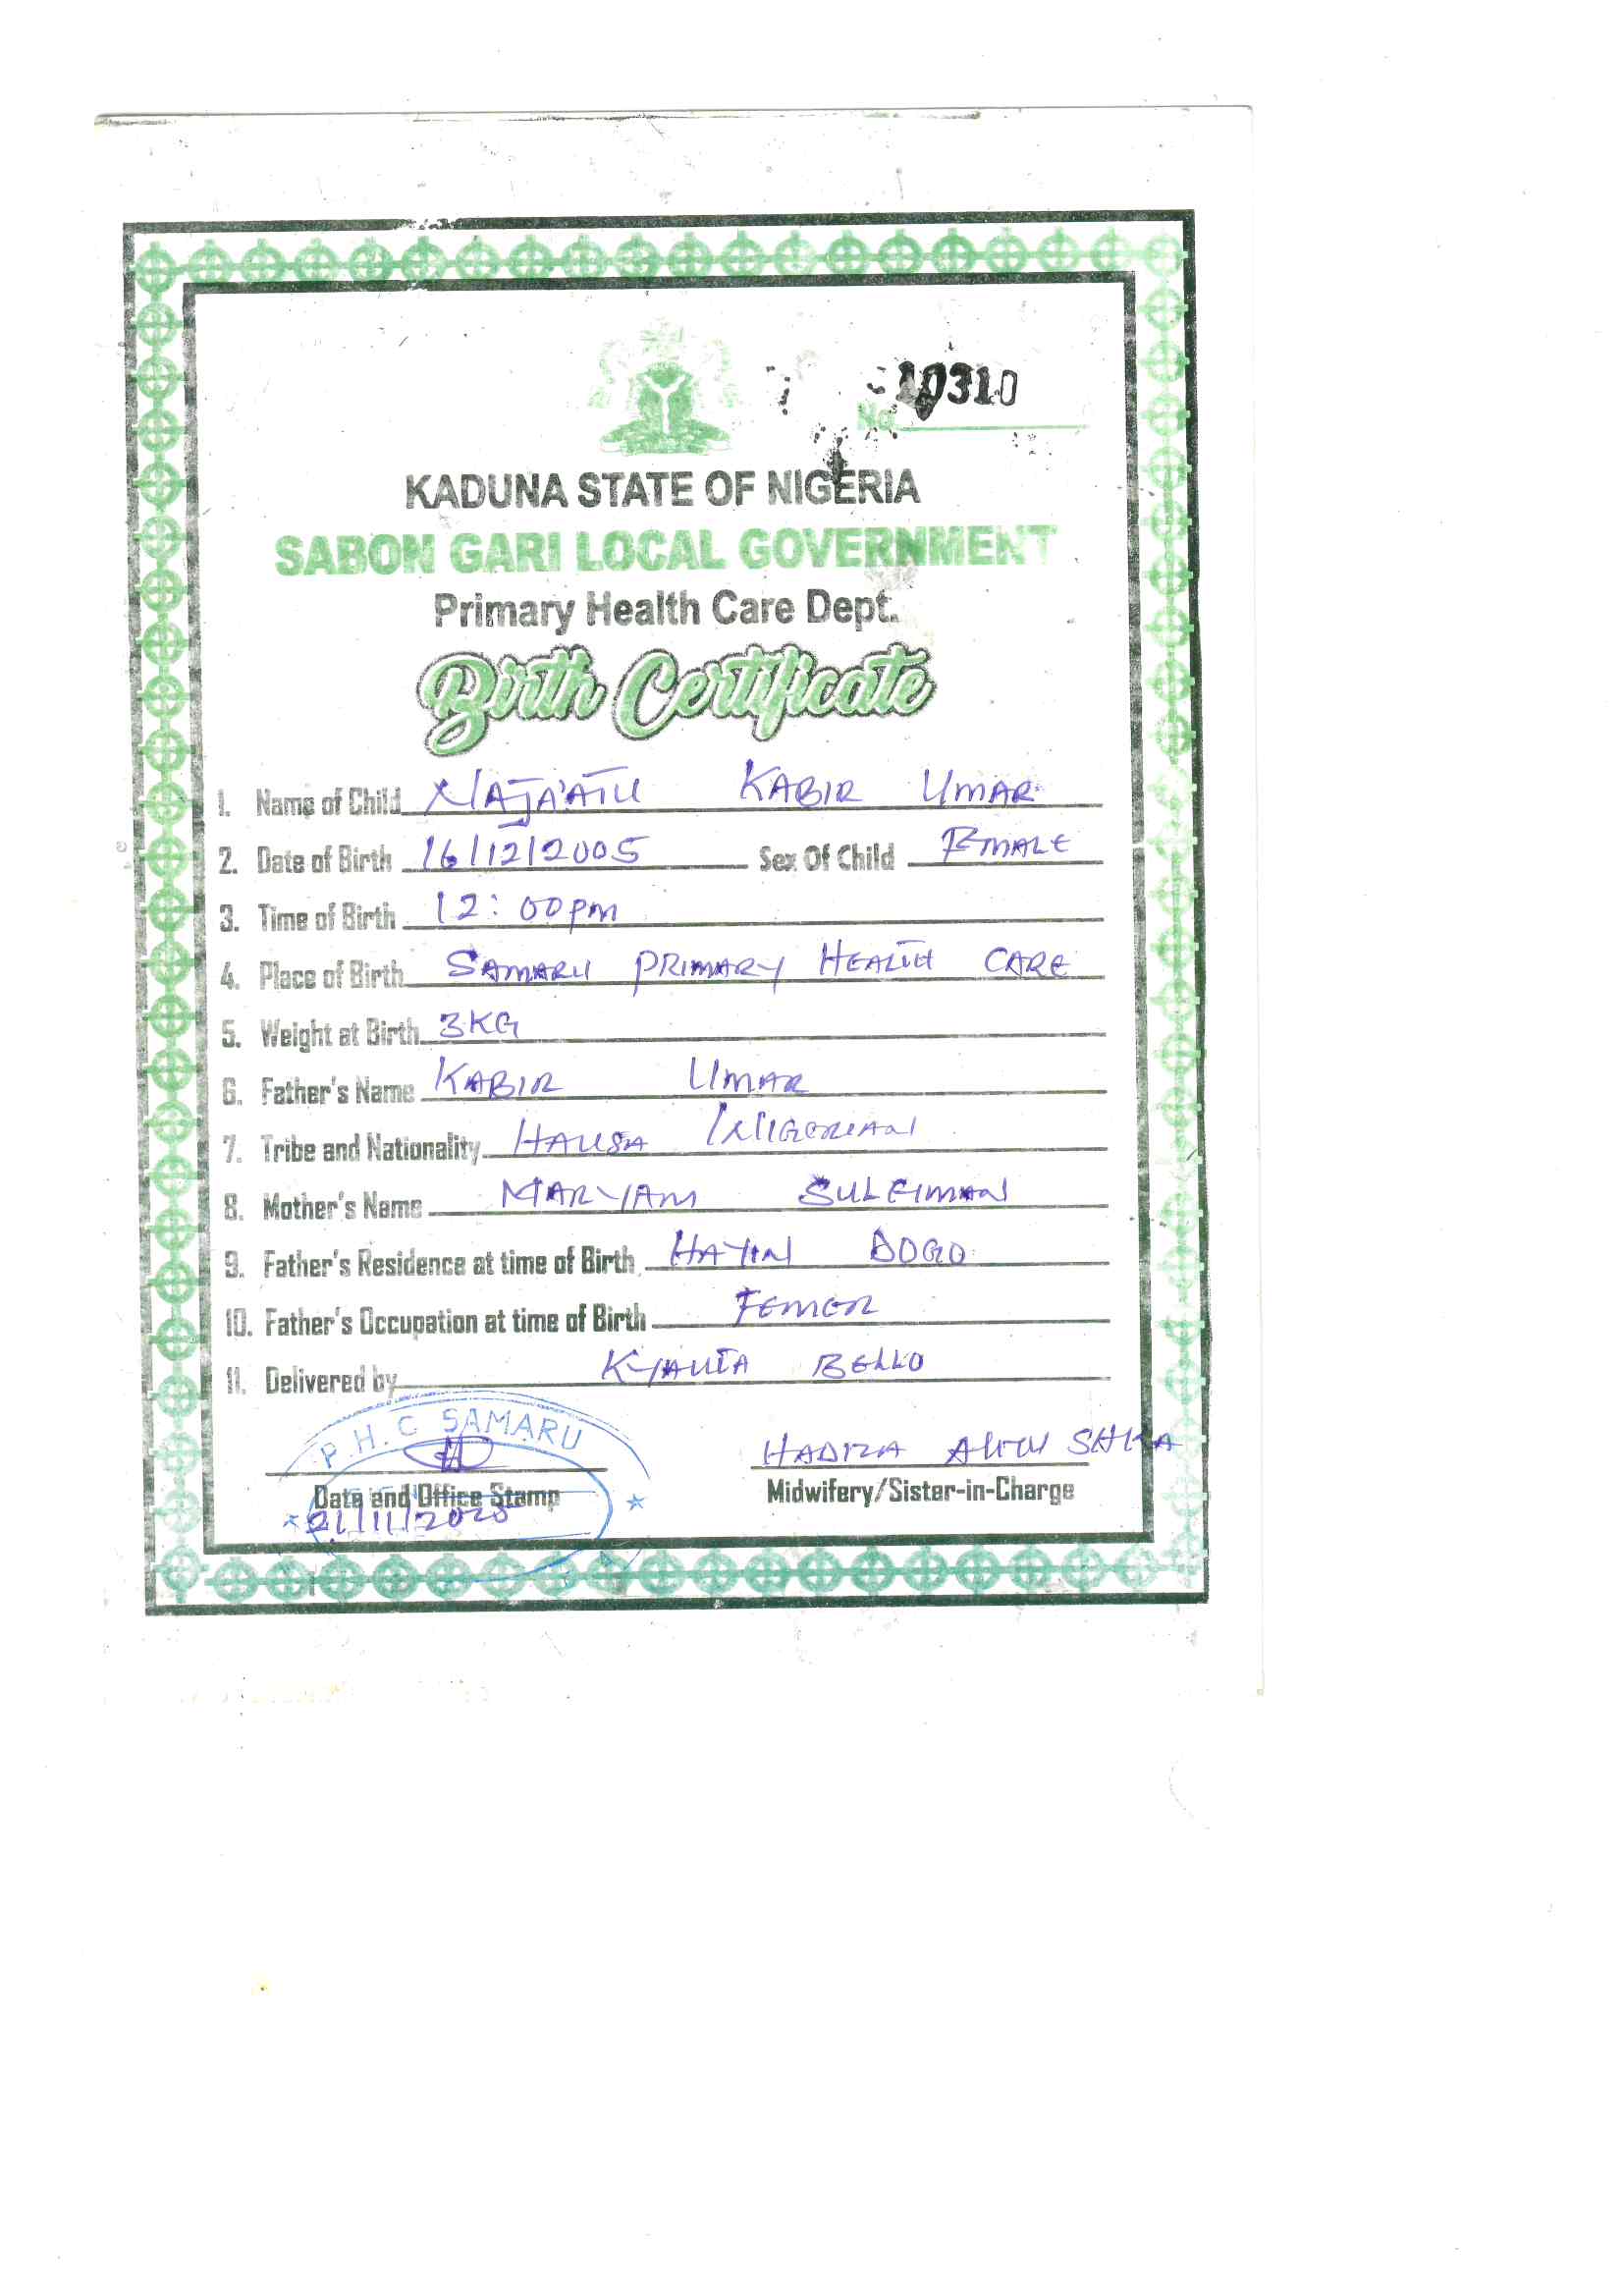 10310
No
KADUNA STATE OF NIGERIA
SABON GARI LOCAL GOVERNMENT
Primary Health Care Dept.
Birth Certificate
1. Name of Child NAJA'ATU KABIR UMAR
2. Date of Birth 16/12/2005 Sex Of Child FEMALE
3. Time of Birth 12:00pm
4. Place of Birth SAMARU PRIMARY HEALTH CARE
5. Weight at Birth 3KG
6. Father's Name KABIR UMAR
7. Tribe and Nationality HAUSA / NIGERIAN
8. Mother's Name MARYAM SULEIMAN
9. Father's Residence at time of Birth HAYIN DOGO
10. Father's Occupation at time of Birth FEMER
11. Delivered by KYAUTA BELLO
P.H.C SAMARU
HADIZA SHIKA
Date and Office Stamp Midwifery/Sister-in-Charge
21/11/2025